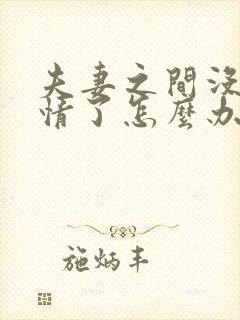 夫妻之間沒
情了怎麼办
施炳丰